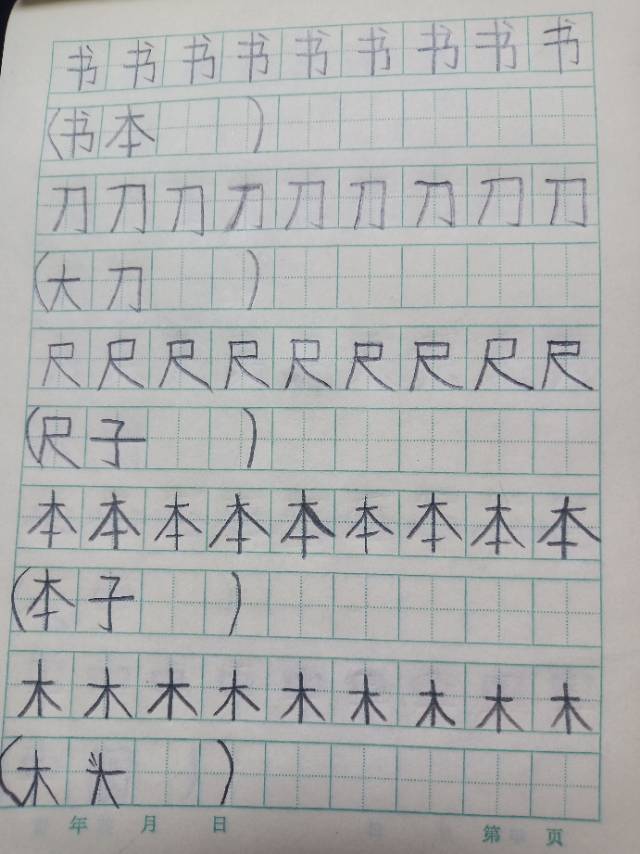 书书书书书书书书书
(书本)
刀刀刀刀刀刀刀刀刀
(大刀)
尺尺尺尺尺尺尺尺尺
(尺子)
本本本本本本本本本
(本子)
木木木木木木木木木
(木头)
年 月 日 第 页